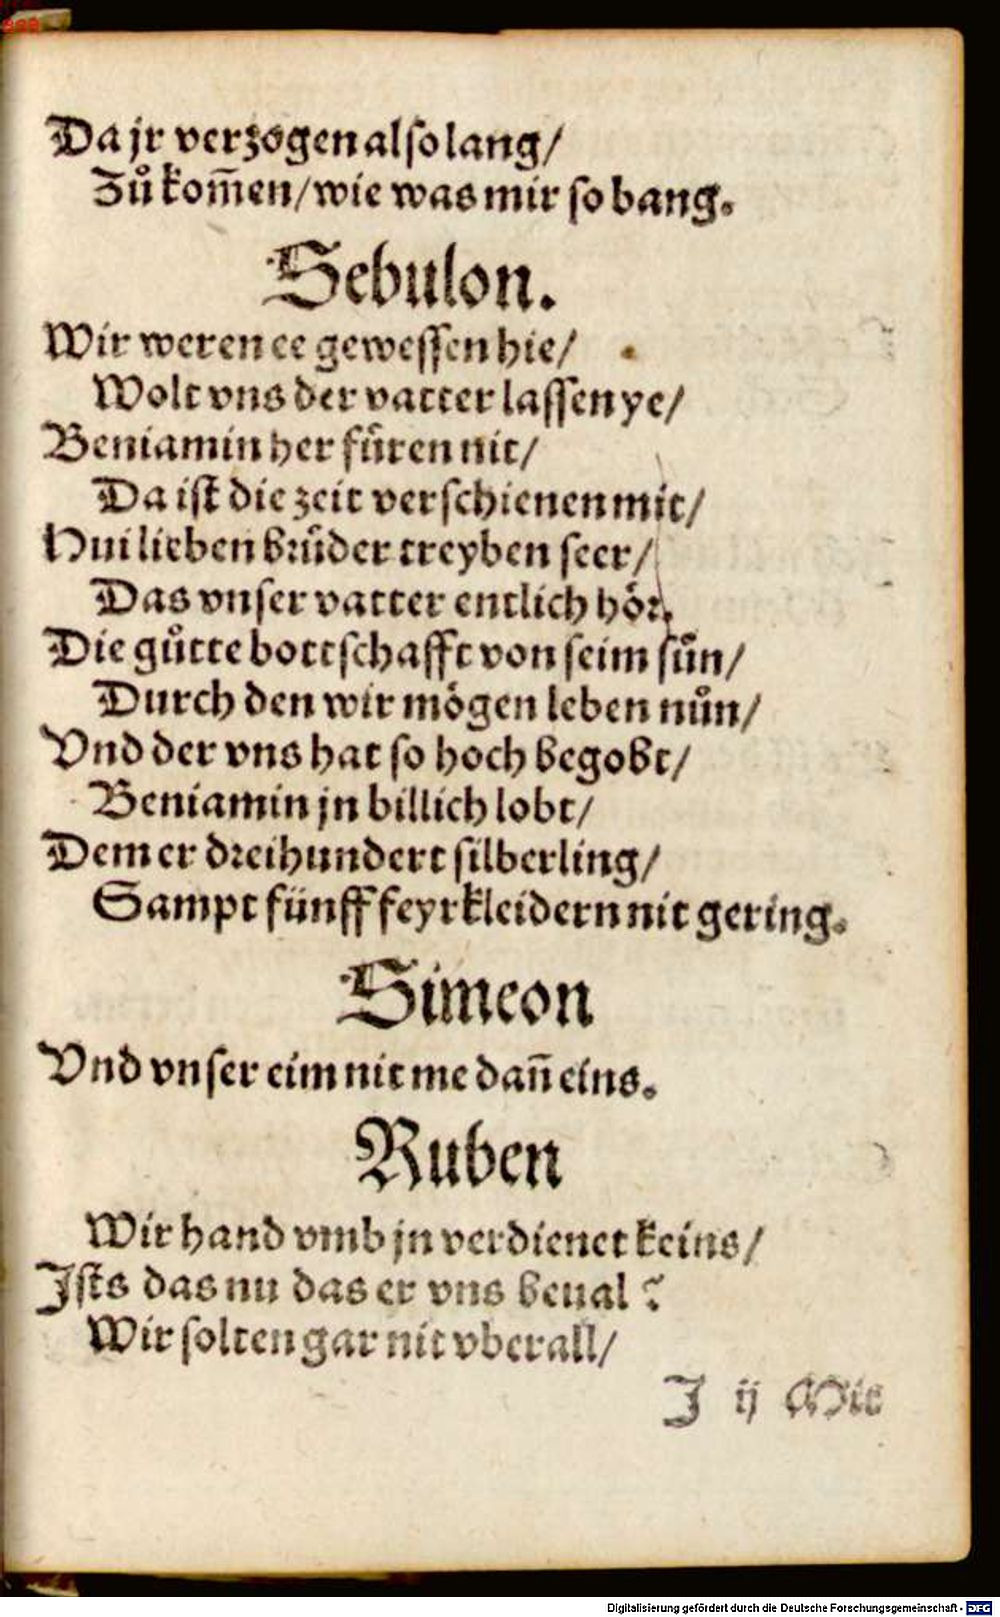 Da jr verzogen also lang/
Zů kom̃en/ wie was mir so bang.
Sebulon.
Wir weren ee gewessen hie/
Wolt vns der vatter lassen ye/
Beniamin her füren nit/
Da ist die zeit verschienen mit/
Hui lieben brůder treyben seer/
Das vnser vatter entlich hör.
Die gůtte bottschafft von seim sůn/
Durch den wir mögen leben nůn/
Vnd der vns hat so hoch begobt/
Beniamin jn billich lobt/
Dem er dreihundert silberling/
Sampt fünff feyrkleidern nit gering.
Simeon
Vnd vnser eim nit me dañ eins.
Ruben
Wir hand vmb jn verdienet keins/
Jsts das nu das er vns beual?
Wir solten gar nit vberall/
J ij Mit
Digitalisierung gefördert durch die Deutsche Forschungsgemeinschaft - DFG